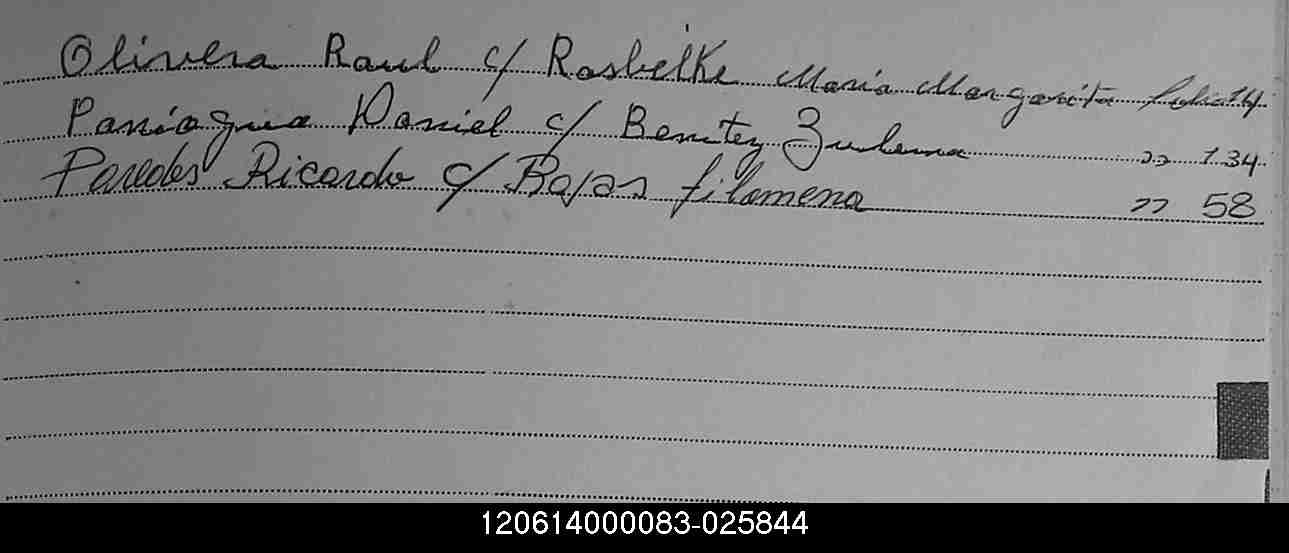 Olivera Raul c/ Rasbelke Maria Margarita folio 14
Paniagua Daniel c/ Benitez Zulema " 134
Paredes Ricardo c/ Rojas filomena " 58
120614000083-025844